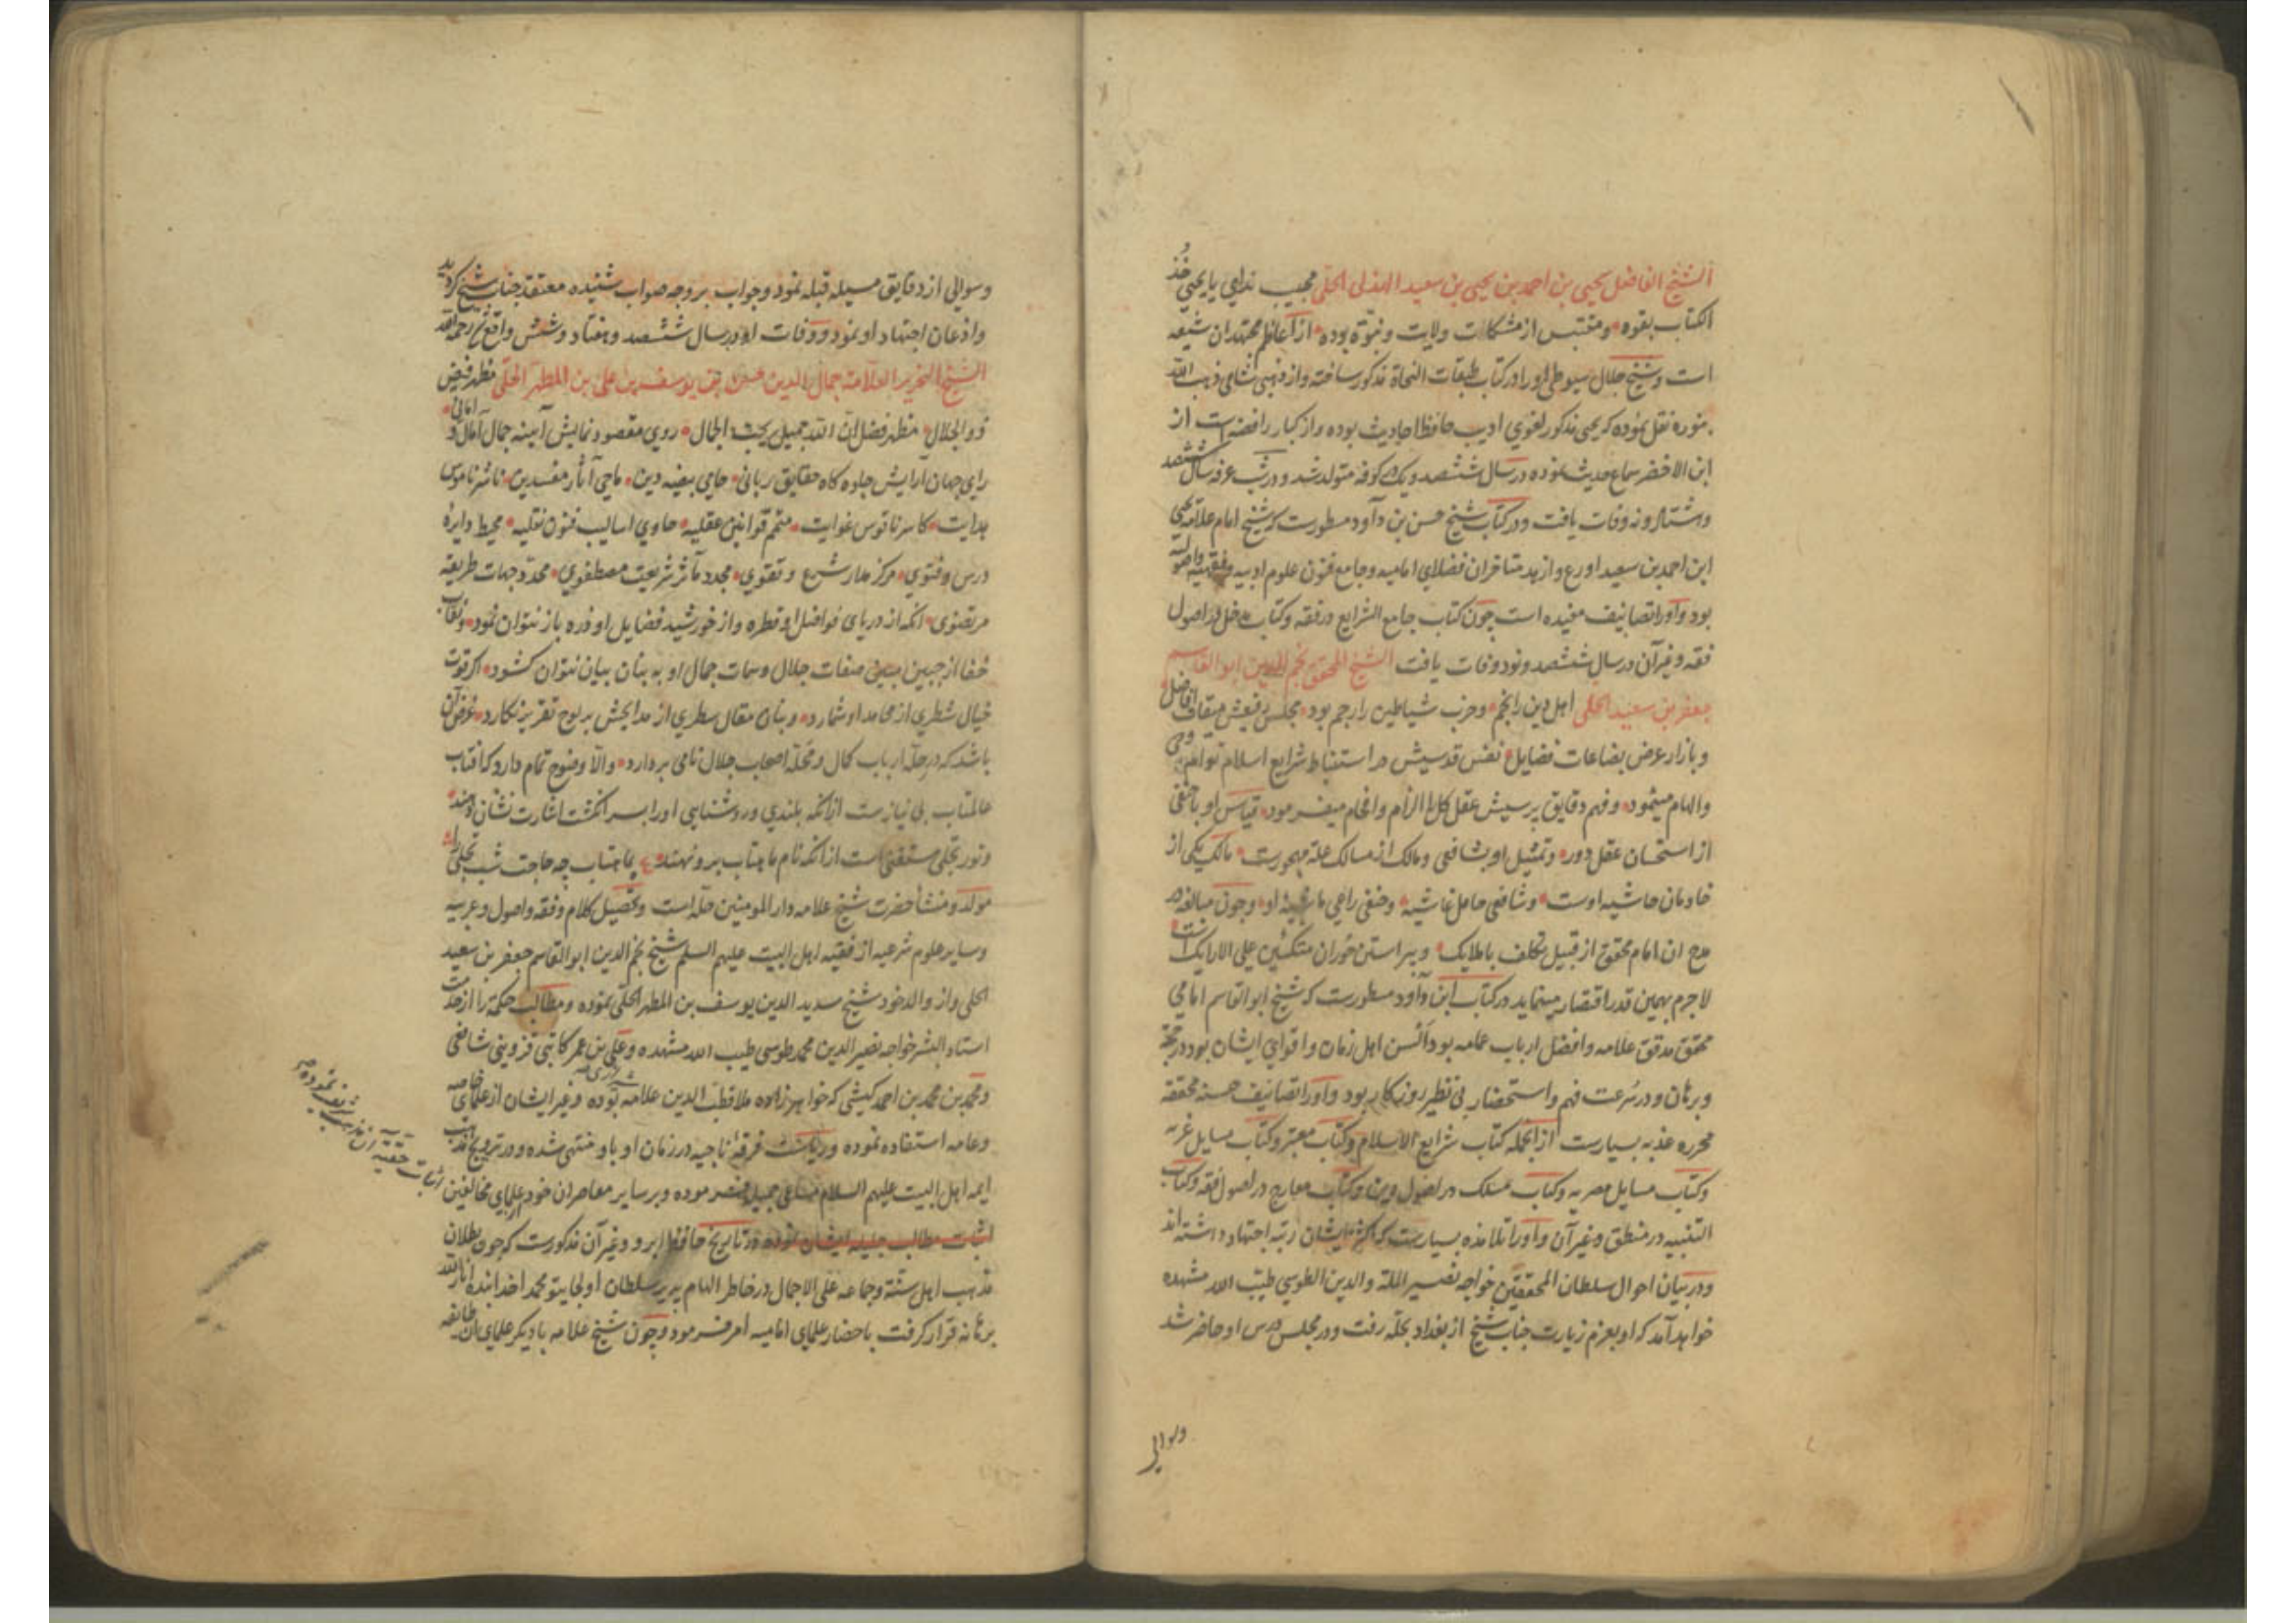 الشیخ الفاضل یحیی بن احمد بن یحیی بن سعید الهذلی الحلی مجیب ندای یا یحیی خذ
الکتاب بقوه و مقتبس از مشکات ولایت و نبوّة بوده از اعاظم مجتهدان شیعه
است و شیخ جلال سیوطی اورا در کتاب طبقات النحاة مذکور ساخته و از ذهبی شامی ذهب الله
بنوره نقل نموده که یحیی مذکور لغوی ادیب حافظ احادیث بوده و از کبار رافضه است از
ابن الاخضر سماع حدیث نموده در سال ششصد و یک در کوفه متولد شد و در شب عرفه سال ششصد
و هشتاد و نه وفات یافت و در کتاب شیخ حسن بن داود مسطورست که شیخ امام علامه یحیی
ابن احمد بن سعید اورع و ازهد متاخران فضلای امامیه و جامع فنون علوم ادبیه و فقهیه و اصولیه
بود و اورا تصانیف مفیده است چون کتاب جامع الشرایع در فقه و کتاب مدخل در اصول
فقه و غیر آن در سال ششصد و نود وفات یافت الشیخ المحقق نجم الدین ابو القاسم
جعفر بن سعید الحلی اهل دین را نجم و حزب شیاطین را رجم بود مجلس رفیعش میقات افاضل
و بازار عرض بضاعات فضایل نفس قدسیش در استنباط شرایع اسلام توام وحی
و الهام مینمود و فهم دقایق پرسیش عقل کل را الزام و افحام میفرمود قیاس او با حنفی
از استحسان عقل دور و تمثیل او بشافعی و مالک از مسالک علة مهجورست مالک یکی از
خادمان حاشیه اوست و شافعی حامل غاشیه و حنفی راعی ماشیه او و چون مبالغه در
مدح ان امام محقق از قبیل تکلف باملایک و پیراستن حوران متکئین علی الارایک است
لاجرم بهمین قدر اقتصار مینماید در کتاب ابن داود مسطورست که شیخ ابو القاسم امامی
محقق مدقق علامه و افضل ارباب عمامه بود السن اهل زمان و اقوای ایشان بود در حجة
و برهان و در سُرعت فهم و استحضار بی نظیر روزکار بود و اورا تصانیف حسنه محققه
محرره عذبه بسیارست از انجمله کتاب شرایع الاسلام و کتاب معتبر و کتاب مسایل غریه
و کتاب مسایل مصریه و کتاب مسلک در اصول دین و کتاب معارج در اصول فقه و کتاب
التنبیه در منطق و غیر آن و اورا تلامذه بسیارست که اکثر ایشان رتبه اجتهاد داشته اند
و در بیان احوال سلطان المحققین خواجه نصیر الملة و الدین الطوسی طیب الله مشهده
خواهد آمد که او بعزم زیارت جناب شیخ از بغداد بحلّه رفت و در مجلس درس او حاضر شد
وسوالی
وسوالی از دقایق مسیله قبله نمود و جواب بر وجه صواب شنیده معتقد جناب شیخ کردید
و اذعان اجتهاد او نمود و وفات او در سال ششصد و هفتاد و شش واقع شد رحمه الله
الشیخ النحریر العلامة جمال الدین حسن بن یوسف بن علی بن المطهر الحلی مظهر فیض
ذو الجلال مظهر فضل ان الله جمیل یحب الجمال روی مقصود نمایش آینه جمال آمال و امانی
رای جهان آرایش جلوه کاه حقایق ربانی حامی بیضه دین ماحی آثار مفسدین ناشر ناموس
هدایت کاسر ناقوس غوایت متمم قوانین عقلیه حاوی اسالیب فنون نقلیه محیط دایرهٔ
درس و فتوی مرکز مدار شرع و تقوی مجدد مآثر شریعت مصطفوی محدّد جهات طریقه
مرتضوی انکه از دریای فواضل او قطره و از خورشید فضایل او ذره باز نتوان نمود و نقاب
خفا از جبین مبین صفات جلال و سمات جمال او به بنان بیان نتوان کشود اکر قوت
خیال شطری از محامد او شمارد و بنان مقال سطری از مدایحش بر لوح تقریر نکارد غرض آن
باشد که در جلۀ ارباب کمال و محلّه اصحاب جلال نامی بردارد و الّا وضوح تمام دارد که افتاب
عالمتاب بی نیازست از انکه بلندی و روشنایی اورا بسر انکشت اشارت نشان دهند
و نور تجلی مستغنی است از انکه نام ماهتاب برو نهند ع بماهتاب چه حاجت شب تجلی را
مولد و منشأ حضرت شیخ علامه دار المومنین حله است و تحصیل کلام و فقه و اصول و عربیه
و سایر علوم شرعیه از فقیه اهل البیت علیهم السلم شیخ نجم الدین ابو القاسم جعفر بن سعید
الحلی و از والد خود شیخ سدید الدین یوسف بن المطهر الحلّی نموده و مطالب حکمة را از خدمت
استاد البشر خواجه نصیر الدین محمد طوسی طیب الله مشهده و علی بن عمر کاتبی قزوینی شافعی
و محمد بن محمد بن احمد کیشی که خواهر زاده ملا قطب الدین علامه بوده و غیر ایشان از علمای خاصه
و عامه استفاده نموده و ریاست فرقه ناجیه در زمان او باو منتهی شده و در ترویج مذهب
ایمه اهل البیت علیهم السلام مساعی جمیله فرموده و بر سایر معاصران خود از علمای مخالفین
اثبات مطالب جلیله ایشان نموده در تاریخ حافظ ابرو و غیر آن مذکورست که چون بطلان
مذهب اهل سنّة و جماعه علی الاجمال در خاطر الهام پذیر سلطان اولجایتو محمد خدابنده انار الله
برهانه قرار کرفت باحضار علمای امامیه امر فرمود و چون شیخ علامه با دیکر علمای ان طایفه
اثبات حقیه آن مذهب شریف نموده